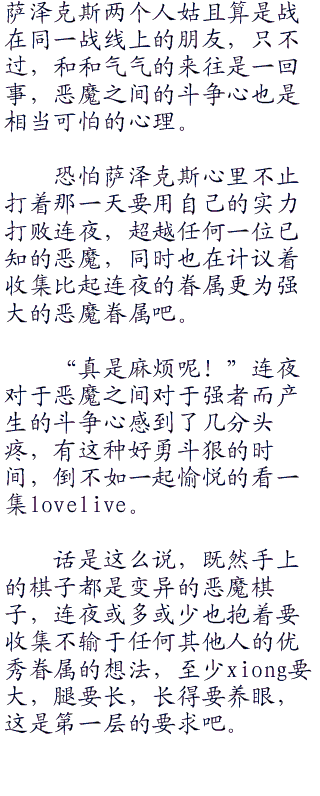 萨泽克斯两个人姑且算是战
在同一战线上的朋友，只不
过，和和气气的来往是一回
事，恶魔之间的斗争心也是
相当可怕的心理。
恐怕萨泽克斯心里不止
打着那一天要用自己的实力
打败连夜，超越任何一位已
知的恶魔，同时也在计议着
收集比起连夜的眷属更为强
大的恶魔眷属吧。
“真是麻烦呢！”连夜
对于恶魔之间对于强者而产
生的斗争心感到了几分头
疼，有这种好勇斗狠的时
间，倒不如一起愉悦的看一
集lovelive。
话是这么说，既然手上
的棋子都是变异的恶魔棋
子，连夜或多或少也抱着要
收集不输于任何其他人的优
秀眷属的想法，至少xiong要
大，腿要长，长得要养眼，
这是第一层的要求吧。